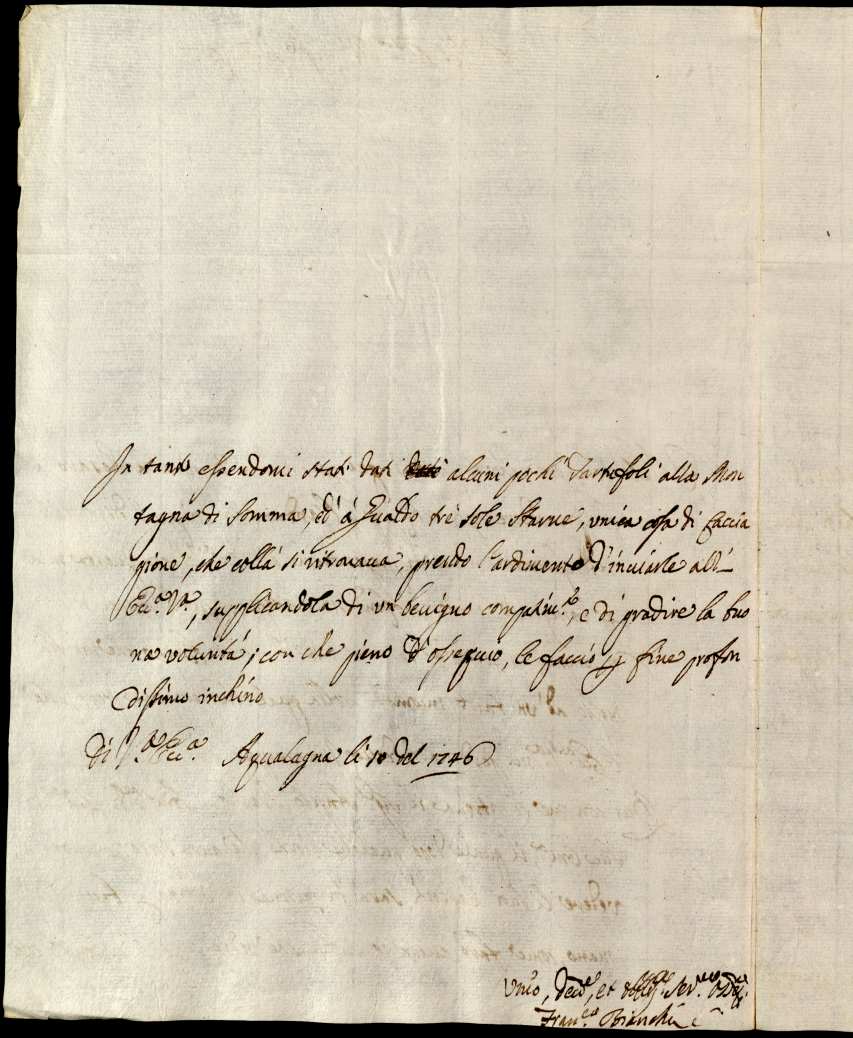 In tanto essendomi stati dati alcuni pochi Tartofoli alla Mon
tagna di Somma, ed à Gualdo trè sole Starne, unica cosa di Caccia
gione, che collà si ritrovava, prendo l'ardimento d'inviarle all'
Ecc.ª Vª, supplicandola di un benigno compatim.to, e di gradire la buo
na voluntà; con che pieno d'ossequio, le faccio per fine profon
dissimo inchino
Di V.ª Ecc.ª Aqualagna li 10 del 1746
Umo, Devo, et obblig. Ser.
Fran.co Bianchi